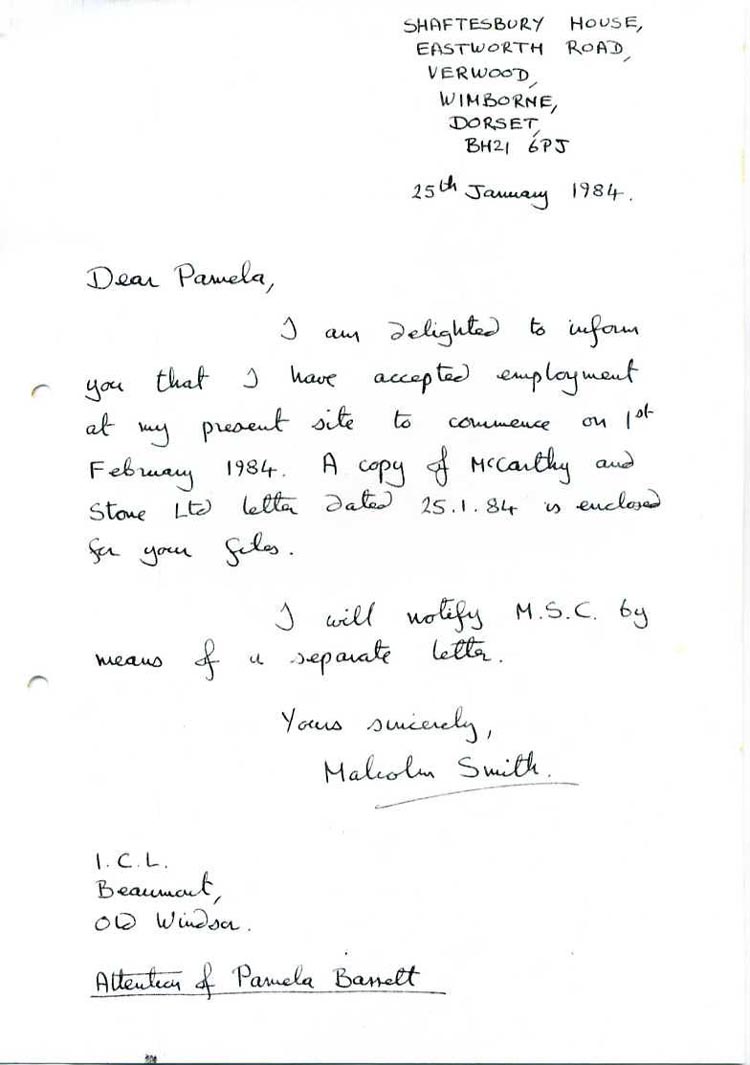 SHAFTESBURY HOUSE,
EASTWORTH ROAD,
VERWOOD,
WIMBORNE,
DORSET,
BH21 6PJ
25th January 1984.
Dear Pamela,
I am delighted to inform
you that I have accepted employment
at my present site to commence on 1st
February 1984. A copy of McCarthy and
Stone Ltd letter dated 25.1.84 is enclosed
for your files.
I will notify M.S.C. by
means of a separate letter.
Yours sincerely,
Malcolm Smith.
I.C.L.
Beaumont,
Old Windsor.
Attention of Pamela Bassett